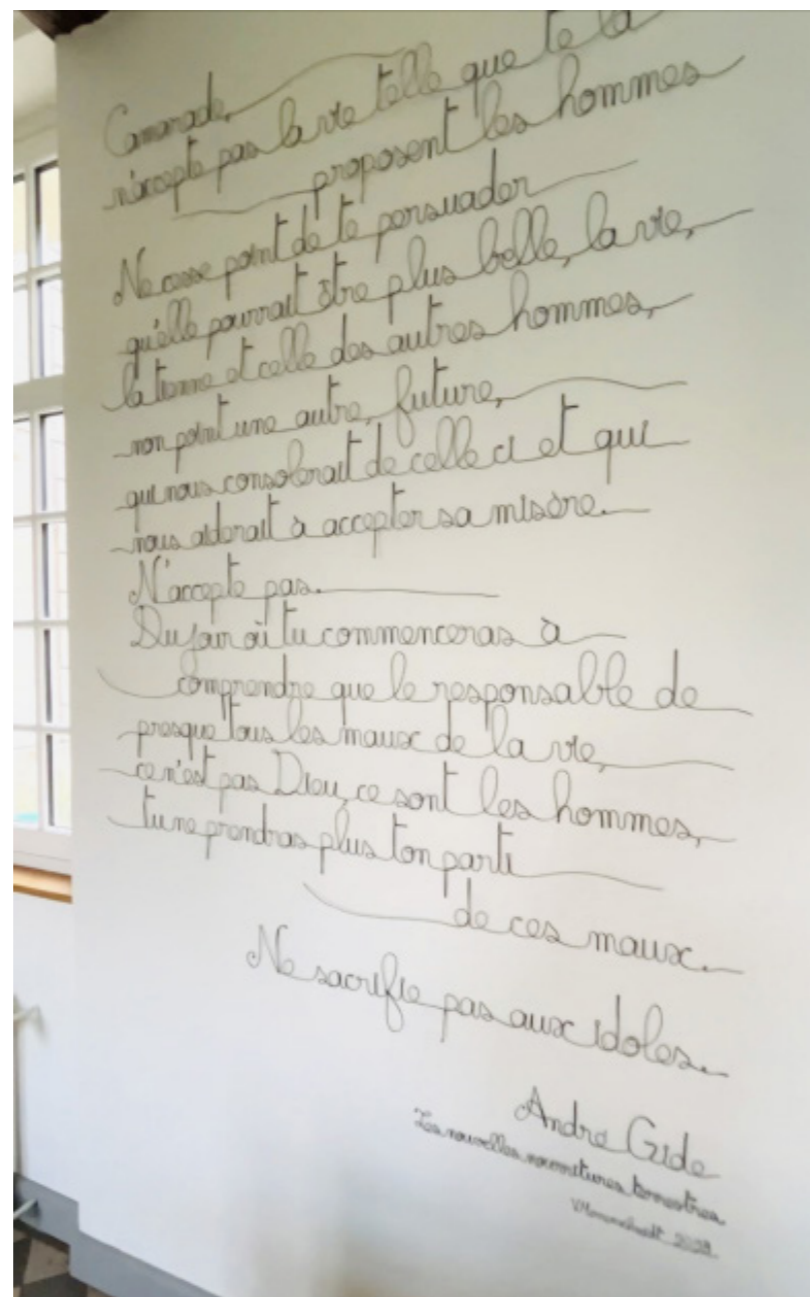 Camarade,
n'accepte pas la vie telle que te la
proposent les hommes
Ne cesse point de te persuader
qu'elle pourrait être plus belle, la vie,
la tienne et celle des autres hommes,
non point une autre, future,
qui nous consolerait de celle ci et qui
nous aiderait à accepter sa misère.
N'accepte pas.
Du jour où tu commenceras à
comprendre que le responsable de
presque tous les maux de la vie,
ce n'est pas Dieu, ce sont les hommes,
tu ne prendras plus ton parti
de ces maux.
Ne sacrifie pas aux idoles.
André Gide
Les nouvelles nourritures terrestres